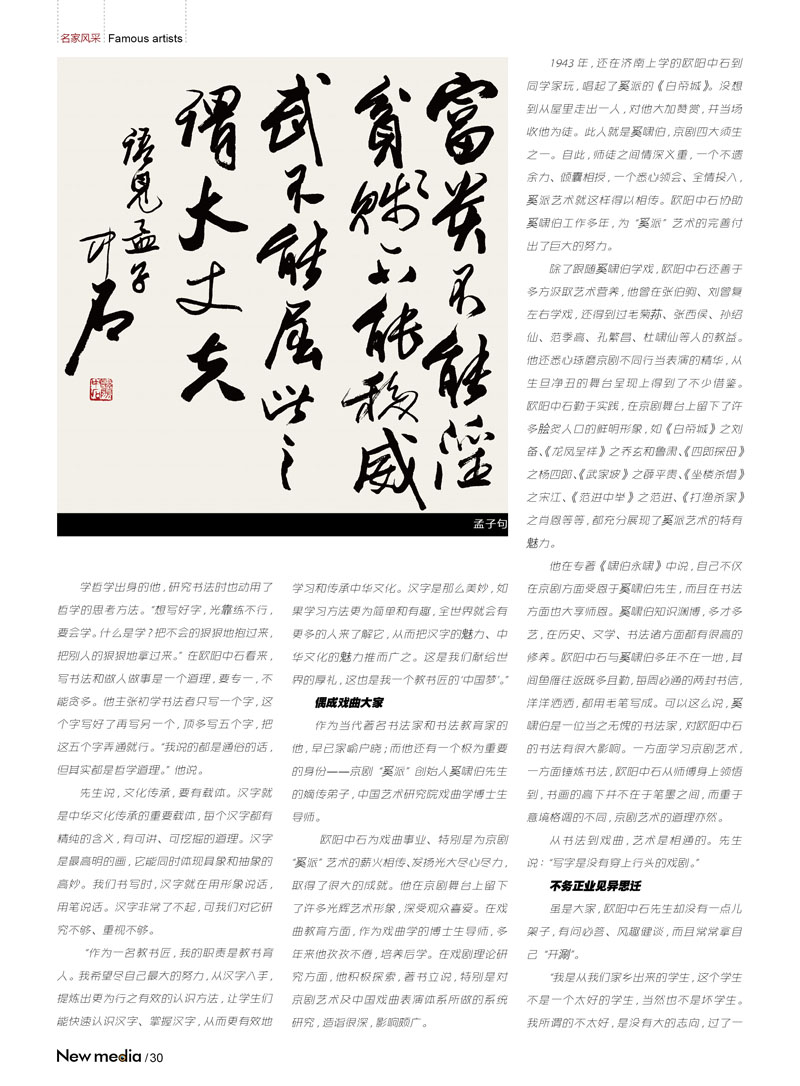 名家风采 Famous artists
富贵不能淫
贫贱不能移威
武不能屈此之
谓大丈夫
语见孟子
中石
孟子句
学哲学出身的他，研究书法时也动用了
哲学的思考方法。“想写好字，光靠练不行，
要会学。什么是学？把不会的狠狠地抱过来，
把别人的狠狠地拿过来。”在欧阳中石看来，
写书法和做人做事是一个道理，要专一，不
能贪多。他主张初学书法者只写一个字，这
个字写好了再写另一个，顶多写五个字，把
这五个字弄通就行。“我说的都是通俗的话，
但其实都是哲学道理。”他说。
先生说，文化传承，要有载体。汉字就
是中华文化传承的重要载体，每个汉字都有
精纯的含义，有可讲、可挖掘的道理。汉字
是最高明的画，它能同时体现具象和抽象的
高妙。我们书写时，汉字就在用形象说话，
用笔说话。汉字非常了不起，可我们对它研
究不够、重视不够。
“作为一名教书匠，我的职责是教书育
人。我希望尽自己最大的努力，从汉字入手，
提炼出更为行之有效的认识方法，让学生们
能快速认识汉字、掌握汉字，从而更有效地
学习和传承中华文化。汉字是那么美妙，如
果学习方法更为简单和有趣，全世界就会有
更多的人来了解它，从而把汉字的魅力、中
华文化的魅力推而广之。这是我们献给世
界的厚礼，这也是我一个教书匠的‘中国梦’。”
偶成戏曲大家
作为当代著名书法家和书法教育家的
他，早已家喻户晓；而他还有一个极为重要
的身份——京剧“奚派”创始人奚啸伯先生
的嫡传弟子，中国艺术研究院戏曲学博士生
导师。
欧阳中石为戏曲事业、特别是为京剧
“奚派”艺术的薪火相传、发扬光大尽心尽力，
取得了很大的成就。他在京剧舞台上留下
了许多光辉艺术形象，深受观众喜爱。在戏
曲教育方面，作为戏曲学的博士生导师，多
年来他孜孜不倦，培养后学。在戏剧理论研
究方面，他积极探索，著书立说，特别是对
京剧艺术及中国戏曲表演体系所做的系统
研究，造诣很深，影响颇广。
1943 年，还在济南上学的欧阳中石到
同学家玩，唱起了奚派的《白帝城》。没想
到从屋里走出一人，对他大加赞赏，并当场
收他为徒。此人就是奚啸伯，京剧四大须生
之一。自此，师徒之间情深义重，一个不遗
余力、倾囊相授，一个悉心领会、全情投入，
奚派艺术就这样得以相传。欧阳中石协助
奚啸伯工作多年，为“奚派”艺术的完善付
出了巨大的努力。
除了跟随奚啸伯学戏，欧阳中石还善于
多方汲取艺术营养，他曾在张伯驹、刘曾复
左右学戏，还得到过毛菊荪、张西侯、孙绍
仙、范季高、孔繁昌、杜啸仙等人的教益。
他还悉心琢磨京剧不同行当表演的精华，从
生旦净丑的舞台呈现上得到了不少借鉴。
欧阳中石勤于实践，在京剧舞台上留下了许
多脍炙人口的鲜明形象，如《白帝城》之刘
备、《龙凤呈祥》之乔玄和鲁肃、《四郎探母》
之杨四郎、《武家坡》之薛平贵、《坐楼杀惜》
之宋江、《范进中举》之范进、《打渔杀家》
之肖恩等等，都充分展现了奚派艺术的特有
魅力。
他在专著《啸伯永啸》中说，自己不仅
在京剧方面受恩于奚啸伯先生，而且在书法
方面也大享师恩。奚啸伯知识渊博，多才多
艺，在历史、文学、书法诸方面都有很高的
修养。欧阳中石与奚啸伯多年不在一地，其
间鱼雁往返既多且勤，每周必通的两封书信，
洋洋洒洒，都用毛笔写成。可以这么说，奚
啸伯是一位当之无愧的书法家，对欧阳中石
的书法有很大影响。一方面学习京剧艺术，
一方面锤炼书法，欧阳中石从师傅身上领悟
到，书画的高下并不在于笔墨之间，而重于
意境格调的不同，京剧艺术的道理亦然。
从书法到戏曲，艺术是相通的。先生
说：“写字是没有穿上行头的戏剧。”
不务正业见异思迁
虽是大家，欧阳中石先生却没有一点儿
架子，有问必答、风趣健谈，而且常常拿自
己“开涮”。
“我是从我们家乡出来的学生，这个学生
不是一个太好的学生，当然也不是坏学生。
我所谓的不太好，是没有大的志向，过了一
New media /30